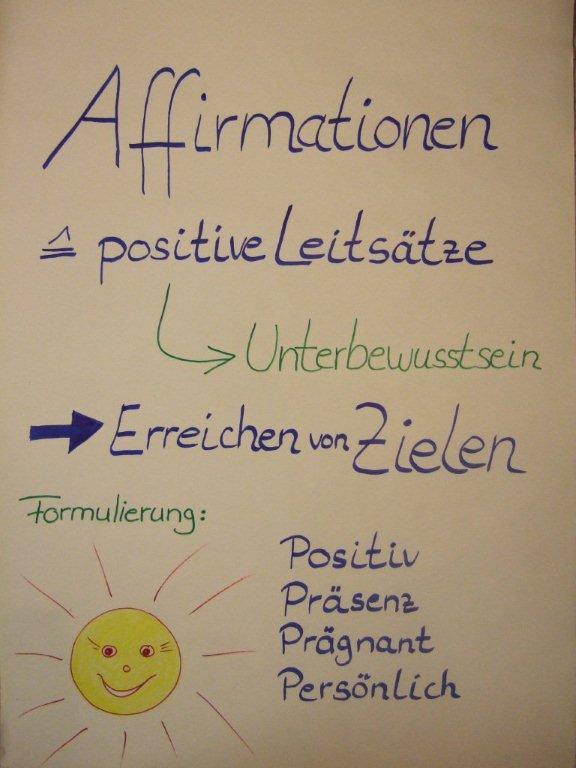 Affirmationen
≙ positive Leitsätze
Unterbewusstsein
Erreichen von Zielen
Formulierung:
Positiv
Präsenz
Prägnant
Persönlich